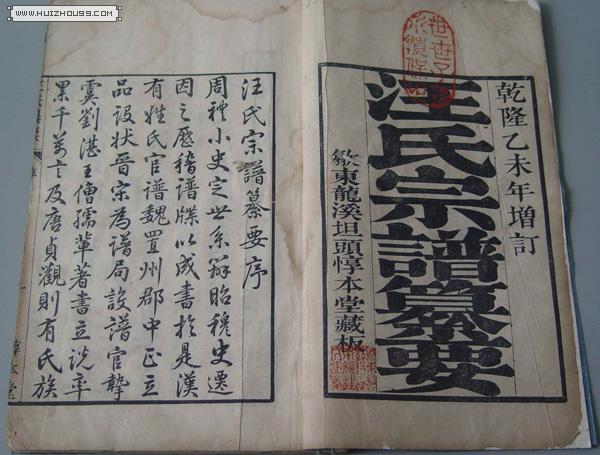 WWW.HUIZHOU99.COM
乾隆乙未年增訂
汪氏宗譜纂要
歙東龍溪坦頭惇本堂藏板
汪氏宗譜纂要序
周禮小史定世系辯昭穆史遷
因之歷稽譜牒以成書於是漢
有姓氏官譜魏置州郡中正立
品設狀晉宋為譜局設譜官摯
虞劉湛王僧孺輩著書立說率
累千萬言及唐貞觀則有氏族
惇本堂